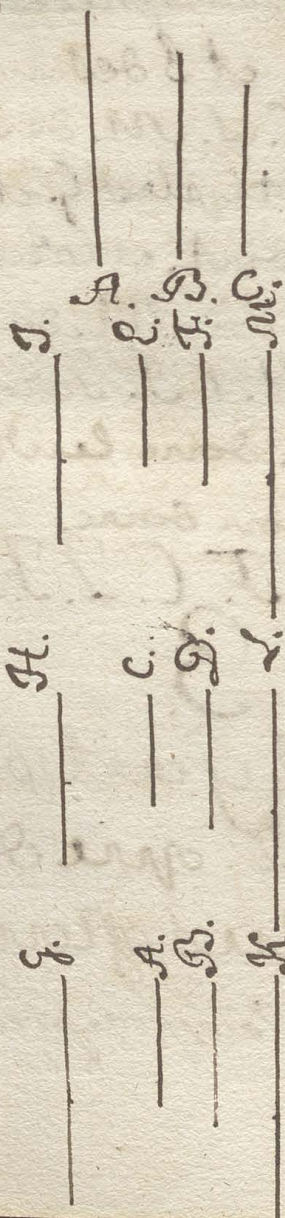 A. B. C.
I. E. F. M.
H. C. D. L.
G. A. B. K